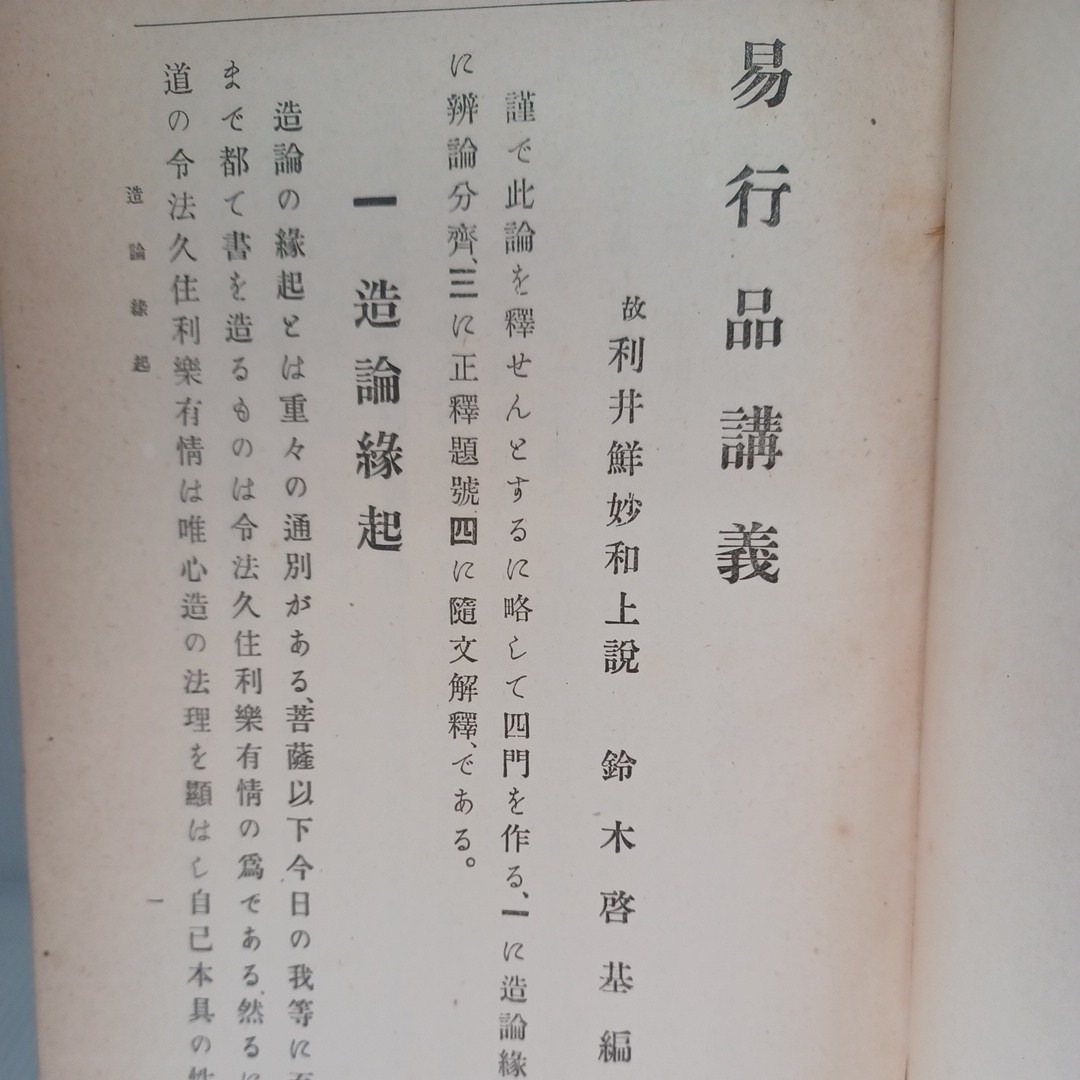 易行品講義
故利井鮮妙和上說 鈴木啓基編
謹で此論を釋せんとするに略して四門を作る、一に造論緣
に辨論分齊、三に正釋題號四に隨文解釋、である。
一 造論緣起
造論の緣起とは重々の通別がある、菩薩以下今日の我等に
まで都て書を造るものは令法久住利樂有情の爲である然るに
道の令法久住利樂有情は唯心造の法理を顯はし自己本具の性
造論緣起
一